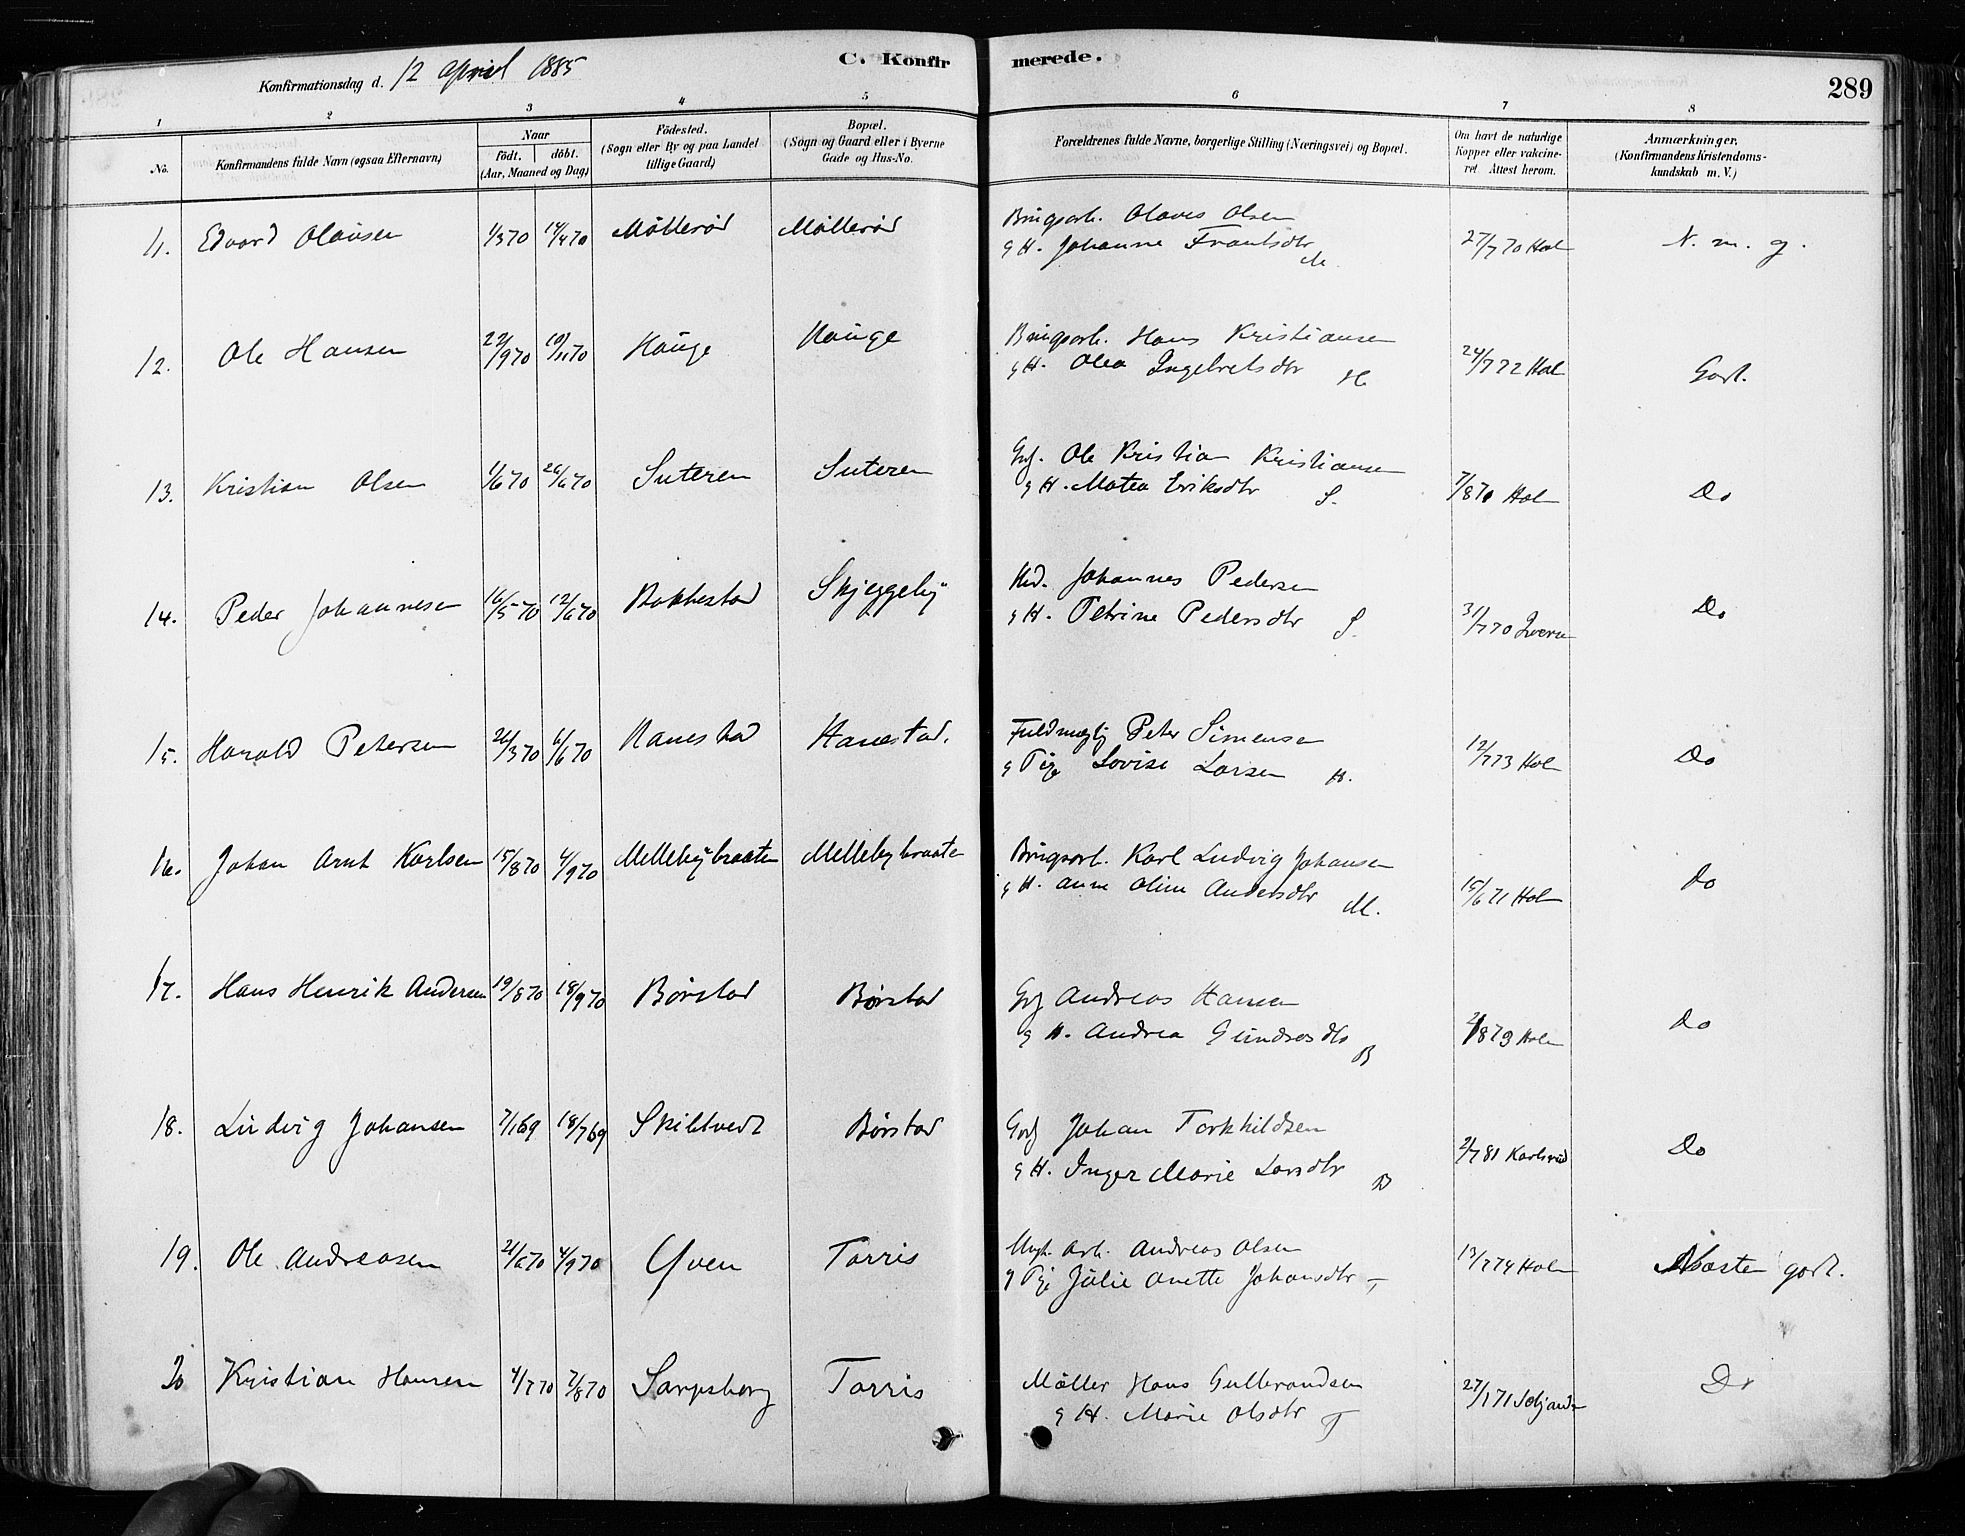 Konfirmationsdag d. 12 April 1885
C. Konfirmerede.
289
1 2 3 4 5 6 7 8
No.
Konfirmandens fulde Navn (ogsaa Efternavn)
Naar
födt. döbt.
(Aar, Maaned og Dag)
Födested.
(Sogn eller By og paa Landet
tillige Gaard)
Bopæl.
(Sogn og Gaard eller i Byerne
Gade og Hus-No.
Forældrenes fulde Navne, borgerlige Stilling (Næringsvei) og Bopæl.
Om havt de naturlige
Kopper eller vakcine-
ret. Attest herom.
Anmærkninger.
(Konfirmandens Kristendoms-
kundskab m. V.)
11. Edvard Olausen 1/3 70 14/4 70 Mötterød Møllerød Brugsarb. Olaves Olsen
g H. Johanne Frantsdtr M. 27/7 70 Hol N. m. g.
12. Ole Hansen 22/9 70 10/11 70 Hauge Hauge Brugsarb. Hans Kristiansen
g H. Olea Ingebretsdtr H. 24/7 72 Hol Godt.
13. Kristian Olsen 1/6 70 26/6 70 Suteren Suteren Grf. Ole Kristian Kristiansen
g H. Matea Eriksdtr S. 7/8 70 Hol Do
14. Peder Johannesen 16/5 70 12/6 70 Bakkestad Skjeggeby Johannes Pedersen
g H. Petrine Pedersdtr S. 31/7 70 Do
15. Harald Petersen 26/3 70 6/6 70 Hanestad Hanestad. Fuldmægtig Peter Simensen
g Pige Lovise Larsen H. 12/7 73 Hol Do
16. Johan Arnt Karlsen 15/8 70 4/9 70 Mellebybraaten Mellebybraaten Brugsarb. Karl Ludvig Johansen
g H. Anne Oline Andersdtr M. 15/6 71 Hol Do
17. Hans Henrik Andersen 19/8 70 18/9 70 Børstad Børstad Grf Andreas Hansen
g H. Andrea Gundersdtr B Hol Do
18. Ludvig Johansen 7/1 69 18/7 69 Skibtvedt Børstad Grf Johan Torkhildsen
g H. Inger Marie Larsdtr B 2/7 81 Karlsrud Do
19. Ole Andreasen 21/6 70 4/9 70 Yven Torris Ungk. Arb. Andreas Olsen
g Pige Julie Anette Johansdtr T 13/7 74 Hol Næsten godt.
20 Kristian Hansen 4/7 70 7/8 70 Sarpsborg Torris Möller Hans Gulbrandsen
g H. Marie Olsdtr T 27/1 71 Do